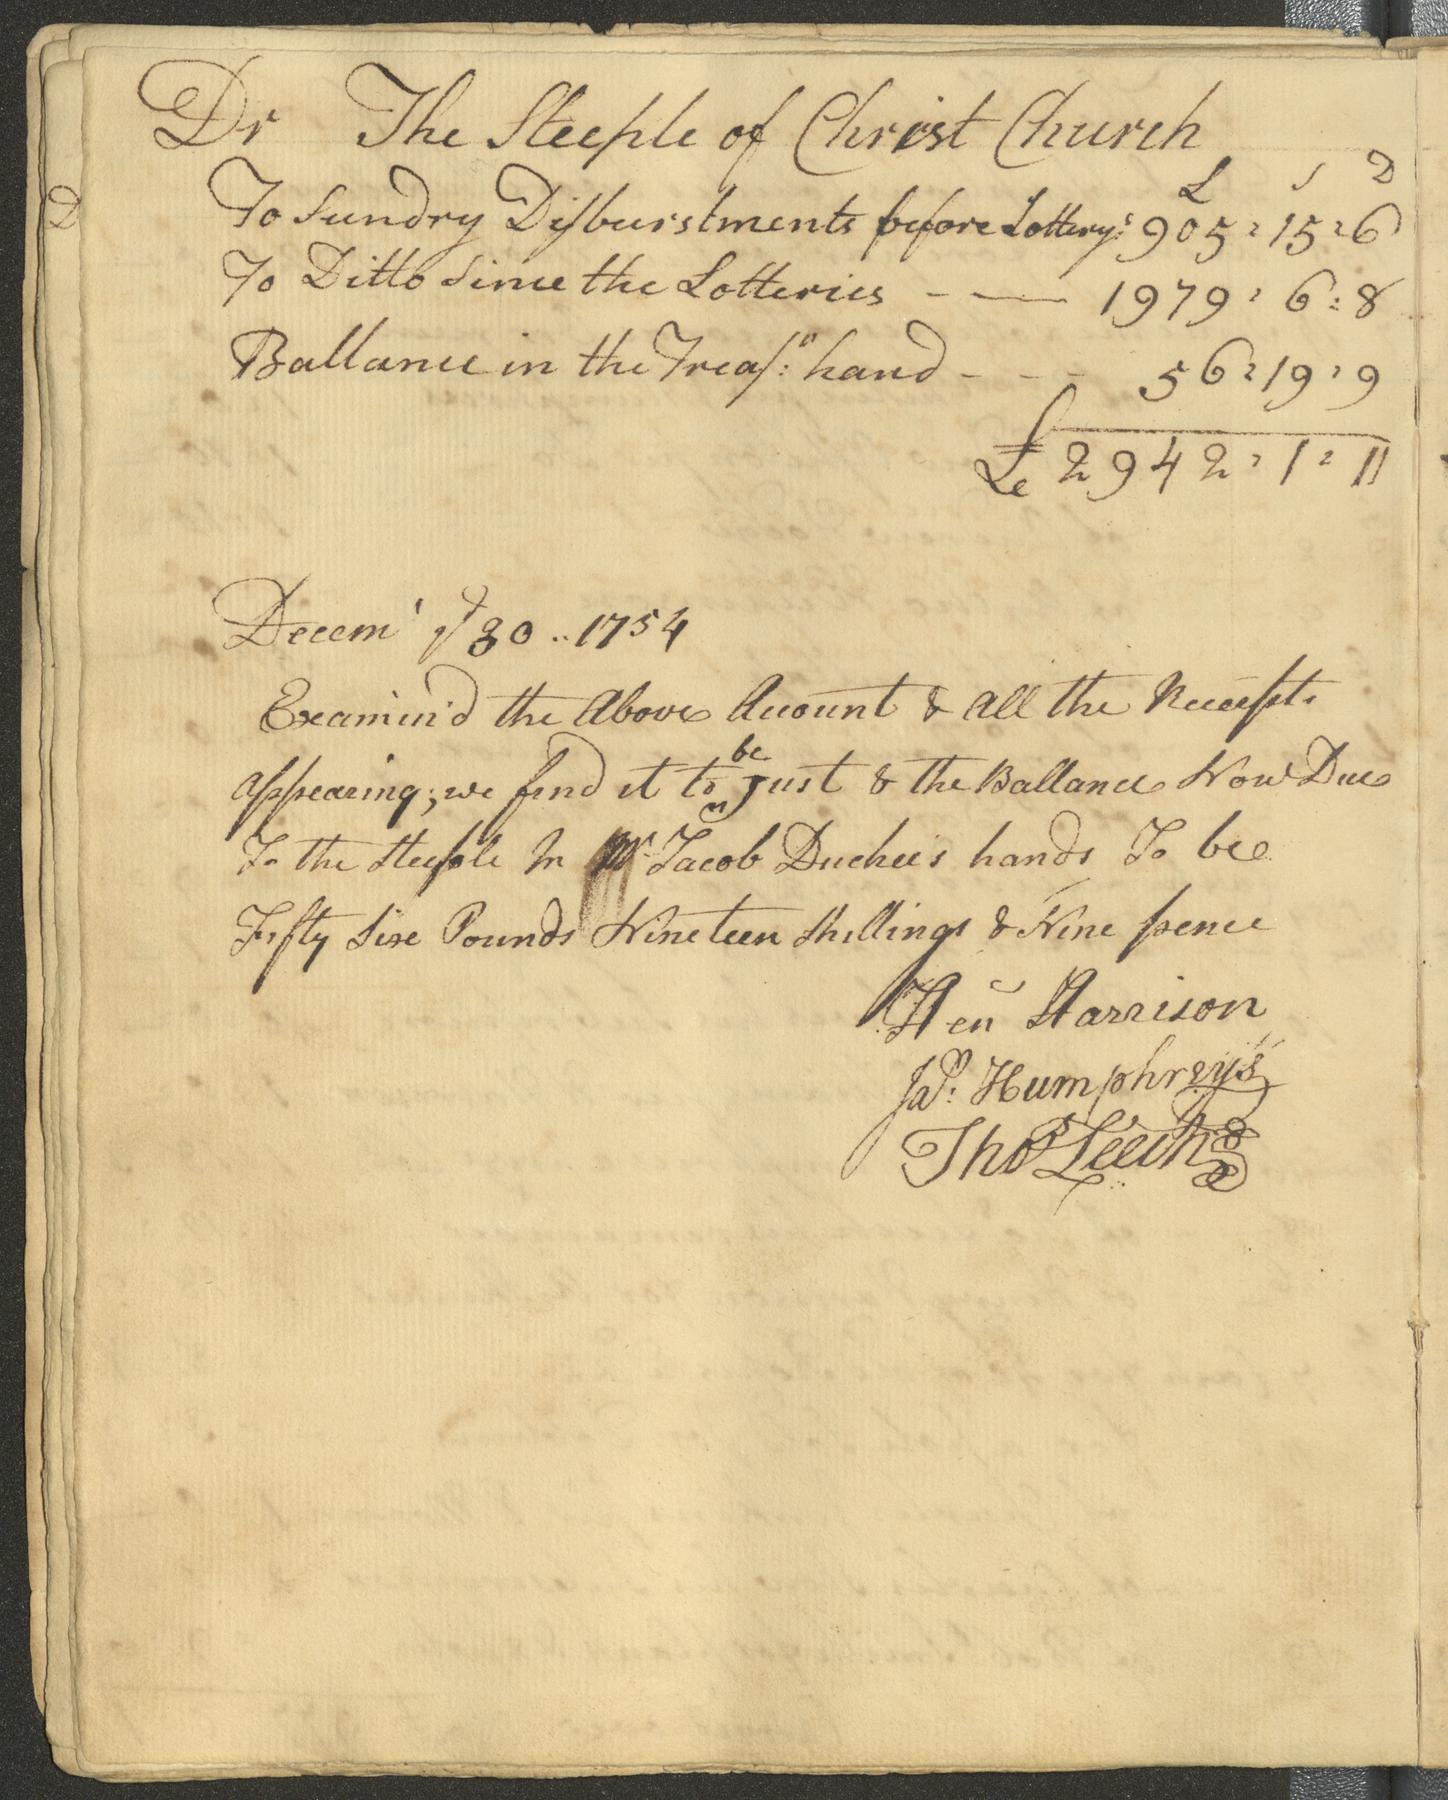 Dr The Steeple of Christ Church
£ S D
To Sundry Disburstments before Lottery's 905 : 15 : 6
To Ditto Since the Lotteries - — 1979 : 6 : 8
Ballance in the Treasrs: hand - - - 56 : 19 : 9
£ 2942 : 1 : 11
Decemr ye 30 .. 1754
Examin'd the Above Account & All the Receipts
Appearing; we find it to be Just & the Ballance Now Due
To the Steeple In Mr Jacob Duchee's hands To be
Fifty Six Pounds Nineteen Shillings & Nine pence
Hen Harrison
Jas: Humphreys
Thos Leech
D